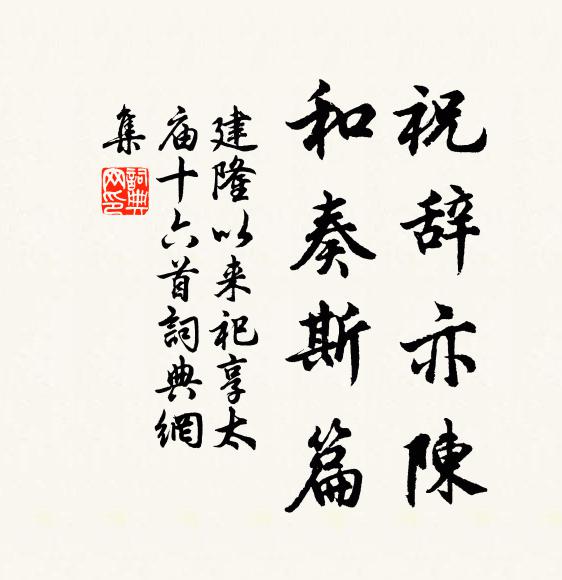 祝辞亦陳
和奏斯篇
建隆以来祀享太
庙十六首詞典網
集
詞典
网印